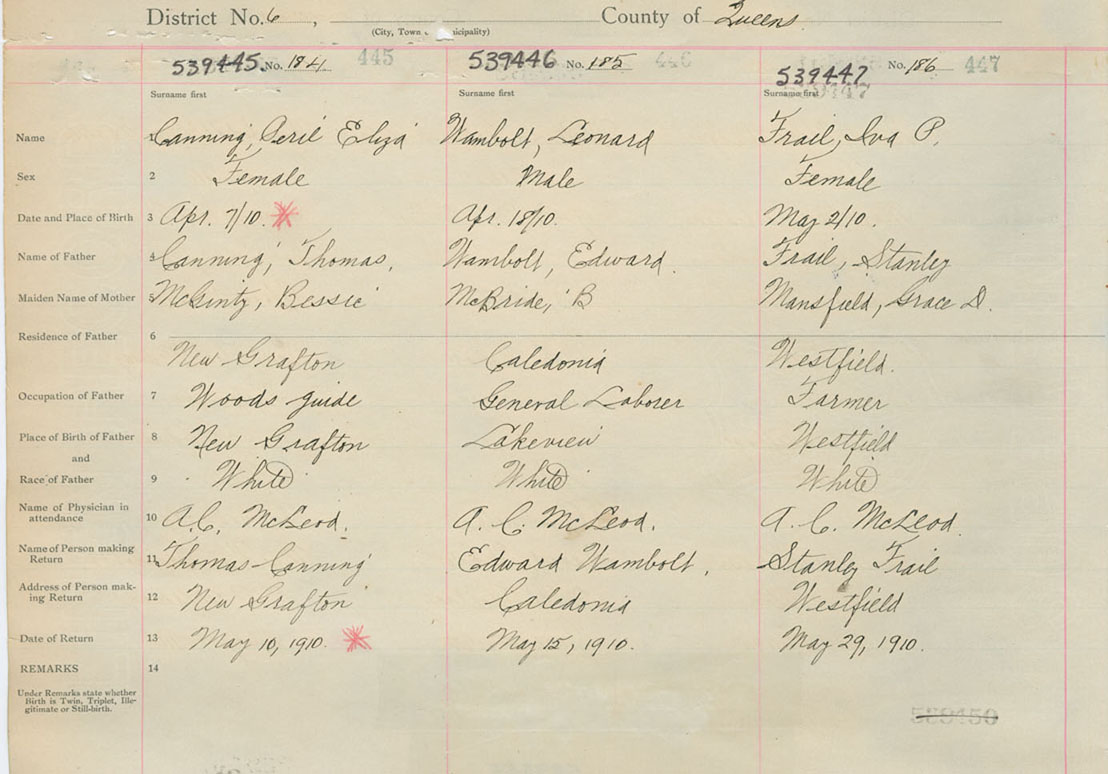 District No. 6, County of Queens
(City, Town or Municipality)
539445 No. 184 445 539446 No. 185 446 539447 No. 186 447
Surname first Surname first Surname first
Name 1 Canning, Peril Eliza Wambolt, Leonard Frail, Iva P.
Sex 2 Female Male Female
Date and Place of Birth 3 Apr. 7/10. Apr. 18/10. May 2/10.
Name of Father 4 Canning, Thomas, Wambolt, Edward. Frail, Stanley
Maiden Name of Mother 5 McGinty, Bessie McBride, B Mansfield, Grace D.
Residence of Father 6
New Grafton Caledonia Westfield.
Occupation of Father 7 Woods guide General Laborer Farmer
Place of Birth of Father 8 New Grafton Lakeview Westfield
and
Race of Father 9 White White White
Name of Physician in
attendance 10 A.C. McLeod. A. C. McLeod. A. C. McLeod.
Name of Person making
Return 11 Thomas Canning Edward Wambolt, Stanley Frail
Address of Person mak-
ing Return 12 New Grafton Caledonia Westfield
Date of Return 13 May 10, 1910. May 15, 1910. May 29, 1910.
REMARKS 14
Under Remarks state whether
Birth is Twin, Triplet, Ille-
gitimate or Still-birth.
539450